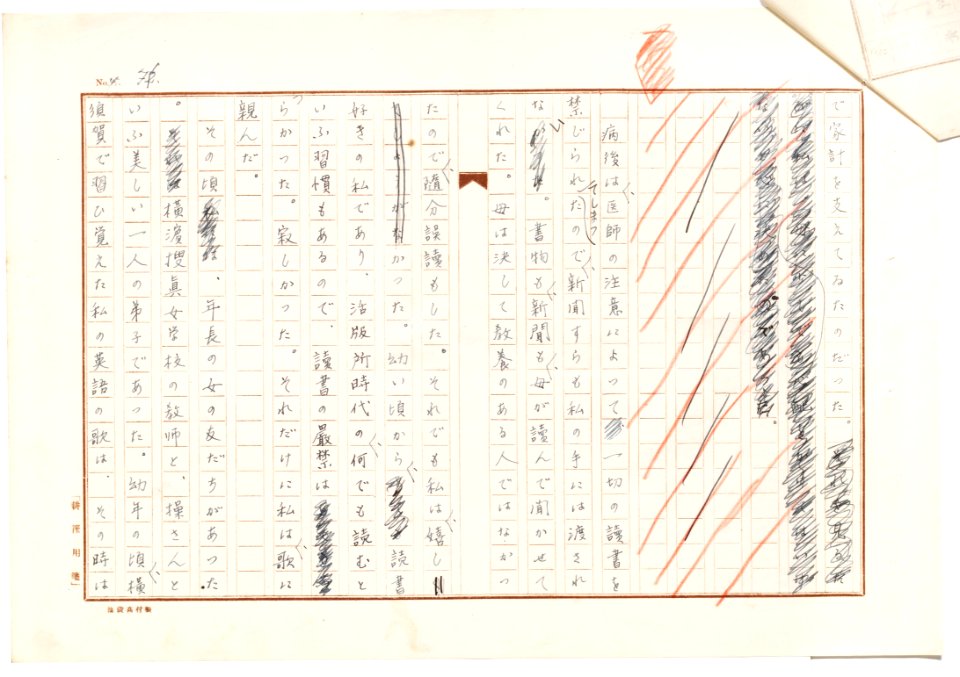 で家計を支えてゐたのだつた。
病後は医師の注意によつて一切の讀書を
禁じられてしまつたので新聞すらも私の手には渡され
ない。書物も新聞も母が讀んで聞かせて
くれた。母は決して教養のある人ではなかつ
たので随分誤読もした。それでも私は嬉し
かつた。幼い頃から読書
好きの私であり、活版所時代の何でも読むと
いふ習慣もあるので、讀書の嚴禁は
つらかつた。寂しかつた。それだけに私は歌に
親んだ。
その頃、年長の女の友だちがあつた
。横濱捜眞女学校の教師と、操さんと
いふ美しい一人の弟子であつた。幼年の頃横
須賀で習ひ覚えた私の英語の歌は、その時は
No.